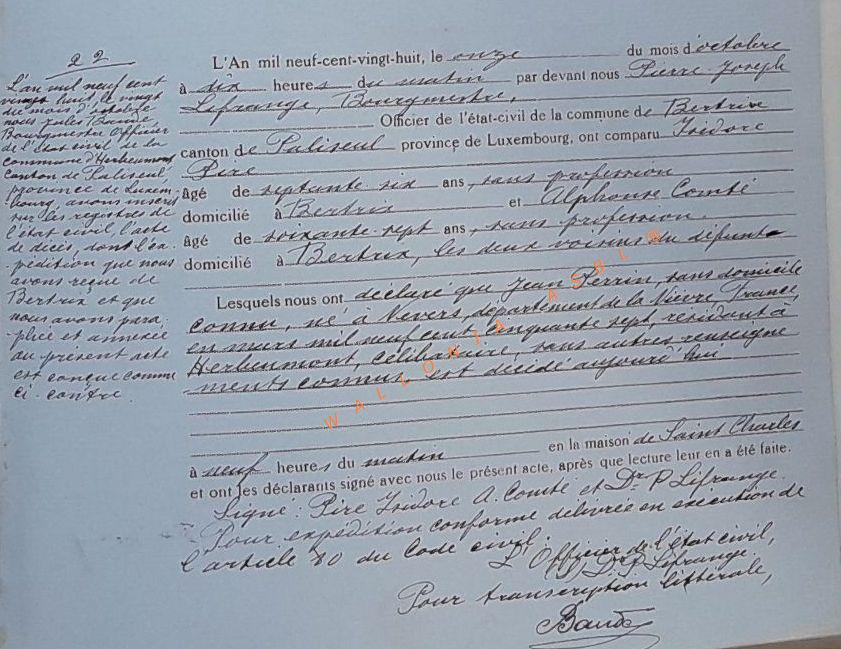 22
L'an mil neuf cent
vingt huit le vingt
du mois d'octobre
nous Jules Baudé,
Bourgmestre Officier
de l'état civil de la
commune d'Herbeumont
Canton de Paliseul
province de Luxem-
bourg, avons inscrit
sur les registres de
l'état civil, l'acte
de décès, dont l'ex-
pédition que nous
avons reçue de
Bertrix et que
nous avons para-
phée et annexée
au présent acte
est conçue comme
ci-contre.
L'An mil neuf-cent-vingt-huit, le onze du mois d'octobre
à dix heures du matin par devant nous Pierre-Joseph
Lefrange, Bourgmestre,
Officier de l'état-civil de la commune de Bertrix
canton de Paliseul province de Luxembourg, ont comparu Isidore
Pire
âgé de septante six ans, sans profession
domicilié à Bertrix et Alphonse Comté
âgé de soixante-sept ans, sans profession.
domicilié à Bertrix, les deux voisins du défunt
Lesquels nous ont déclaré que Jean Perrin, sans domicile
connu, né à Nevers, département de la Nièvre, France
en mars mil neuf cent cinquante sept, résidant à
Herbeumont, célibataire, sans autres renseigne
ments connus est décédé aujourd'hui
à neuf heures du matin en la maison de Saint Charles
et ont les déclarants signé avec nous le présent acte, après que lecture leur en a été faite.
Signé : Pire Isidore A. Comté et Dr P Lefrange.
Pour expédition conforme délivrée en exécution de
l'article 80 du Code civil.
L'Officier de l'état civil,
Dr P. Lefrange.
Pour transcription littérale,
Baudé
WALLONIA ASBL ©